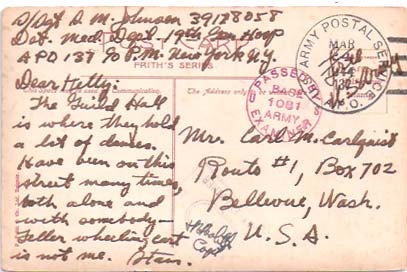 S/Sgt D. M. Johnson 39188058
Det. Med. Dept. 19th Gen Hosp
APO 137 % P.M. New York N.Y.
POST CARD
FRITH'S SERIES
Communication.
The Address only
ARMY POSTAL SERVICE
MAR
1944
137
A.P.O.
PASSED BY
BASE
1081
ARMY
EXAMINER
Dear Folks:
The Guild Hall
is where they hold
a lot of dances.
Have been on this
street many times,
both alone and
with somebody-
Feller wheeling cart
is not me. Stan.
Mr. Carl M. Carlquist
Route #1, Box 702
Bellevue, Wash.
U.S.A.
Capt